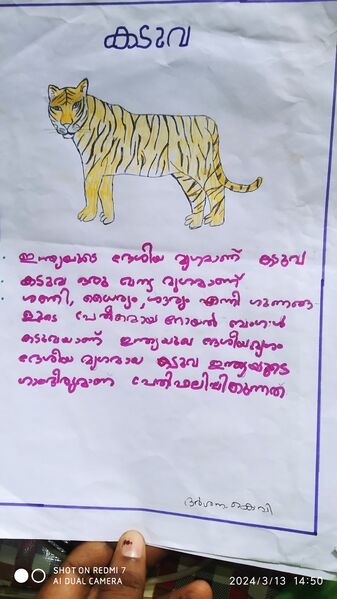 കടുവ
ഇന്ത്യയുടെ ദേശീയ മൃഗമാണ് കടുവ
കടുവ ഒരു വന്യ മൃഗമാണ്
ശക്തി, ധൈര്യം, ശൗര്യം എന്നീ ഗുണങ്ങ
ളുടെ പേരിലായ റോയൽ ബംഗാൾ
കടുവയാണ് ഇന്ത്യയുടെ ദേശീയമൃഗം
ദേശീയ മൃഗമായ കടുവ ഇന്ത്യയുടെ
ദർശന കെ വി
SHOT ON REDMI 7
AI DUAL CAMERA
2024/3/13 14:50